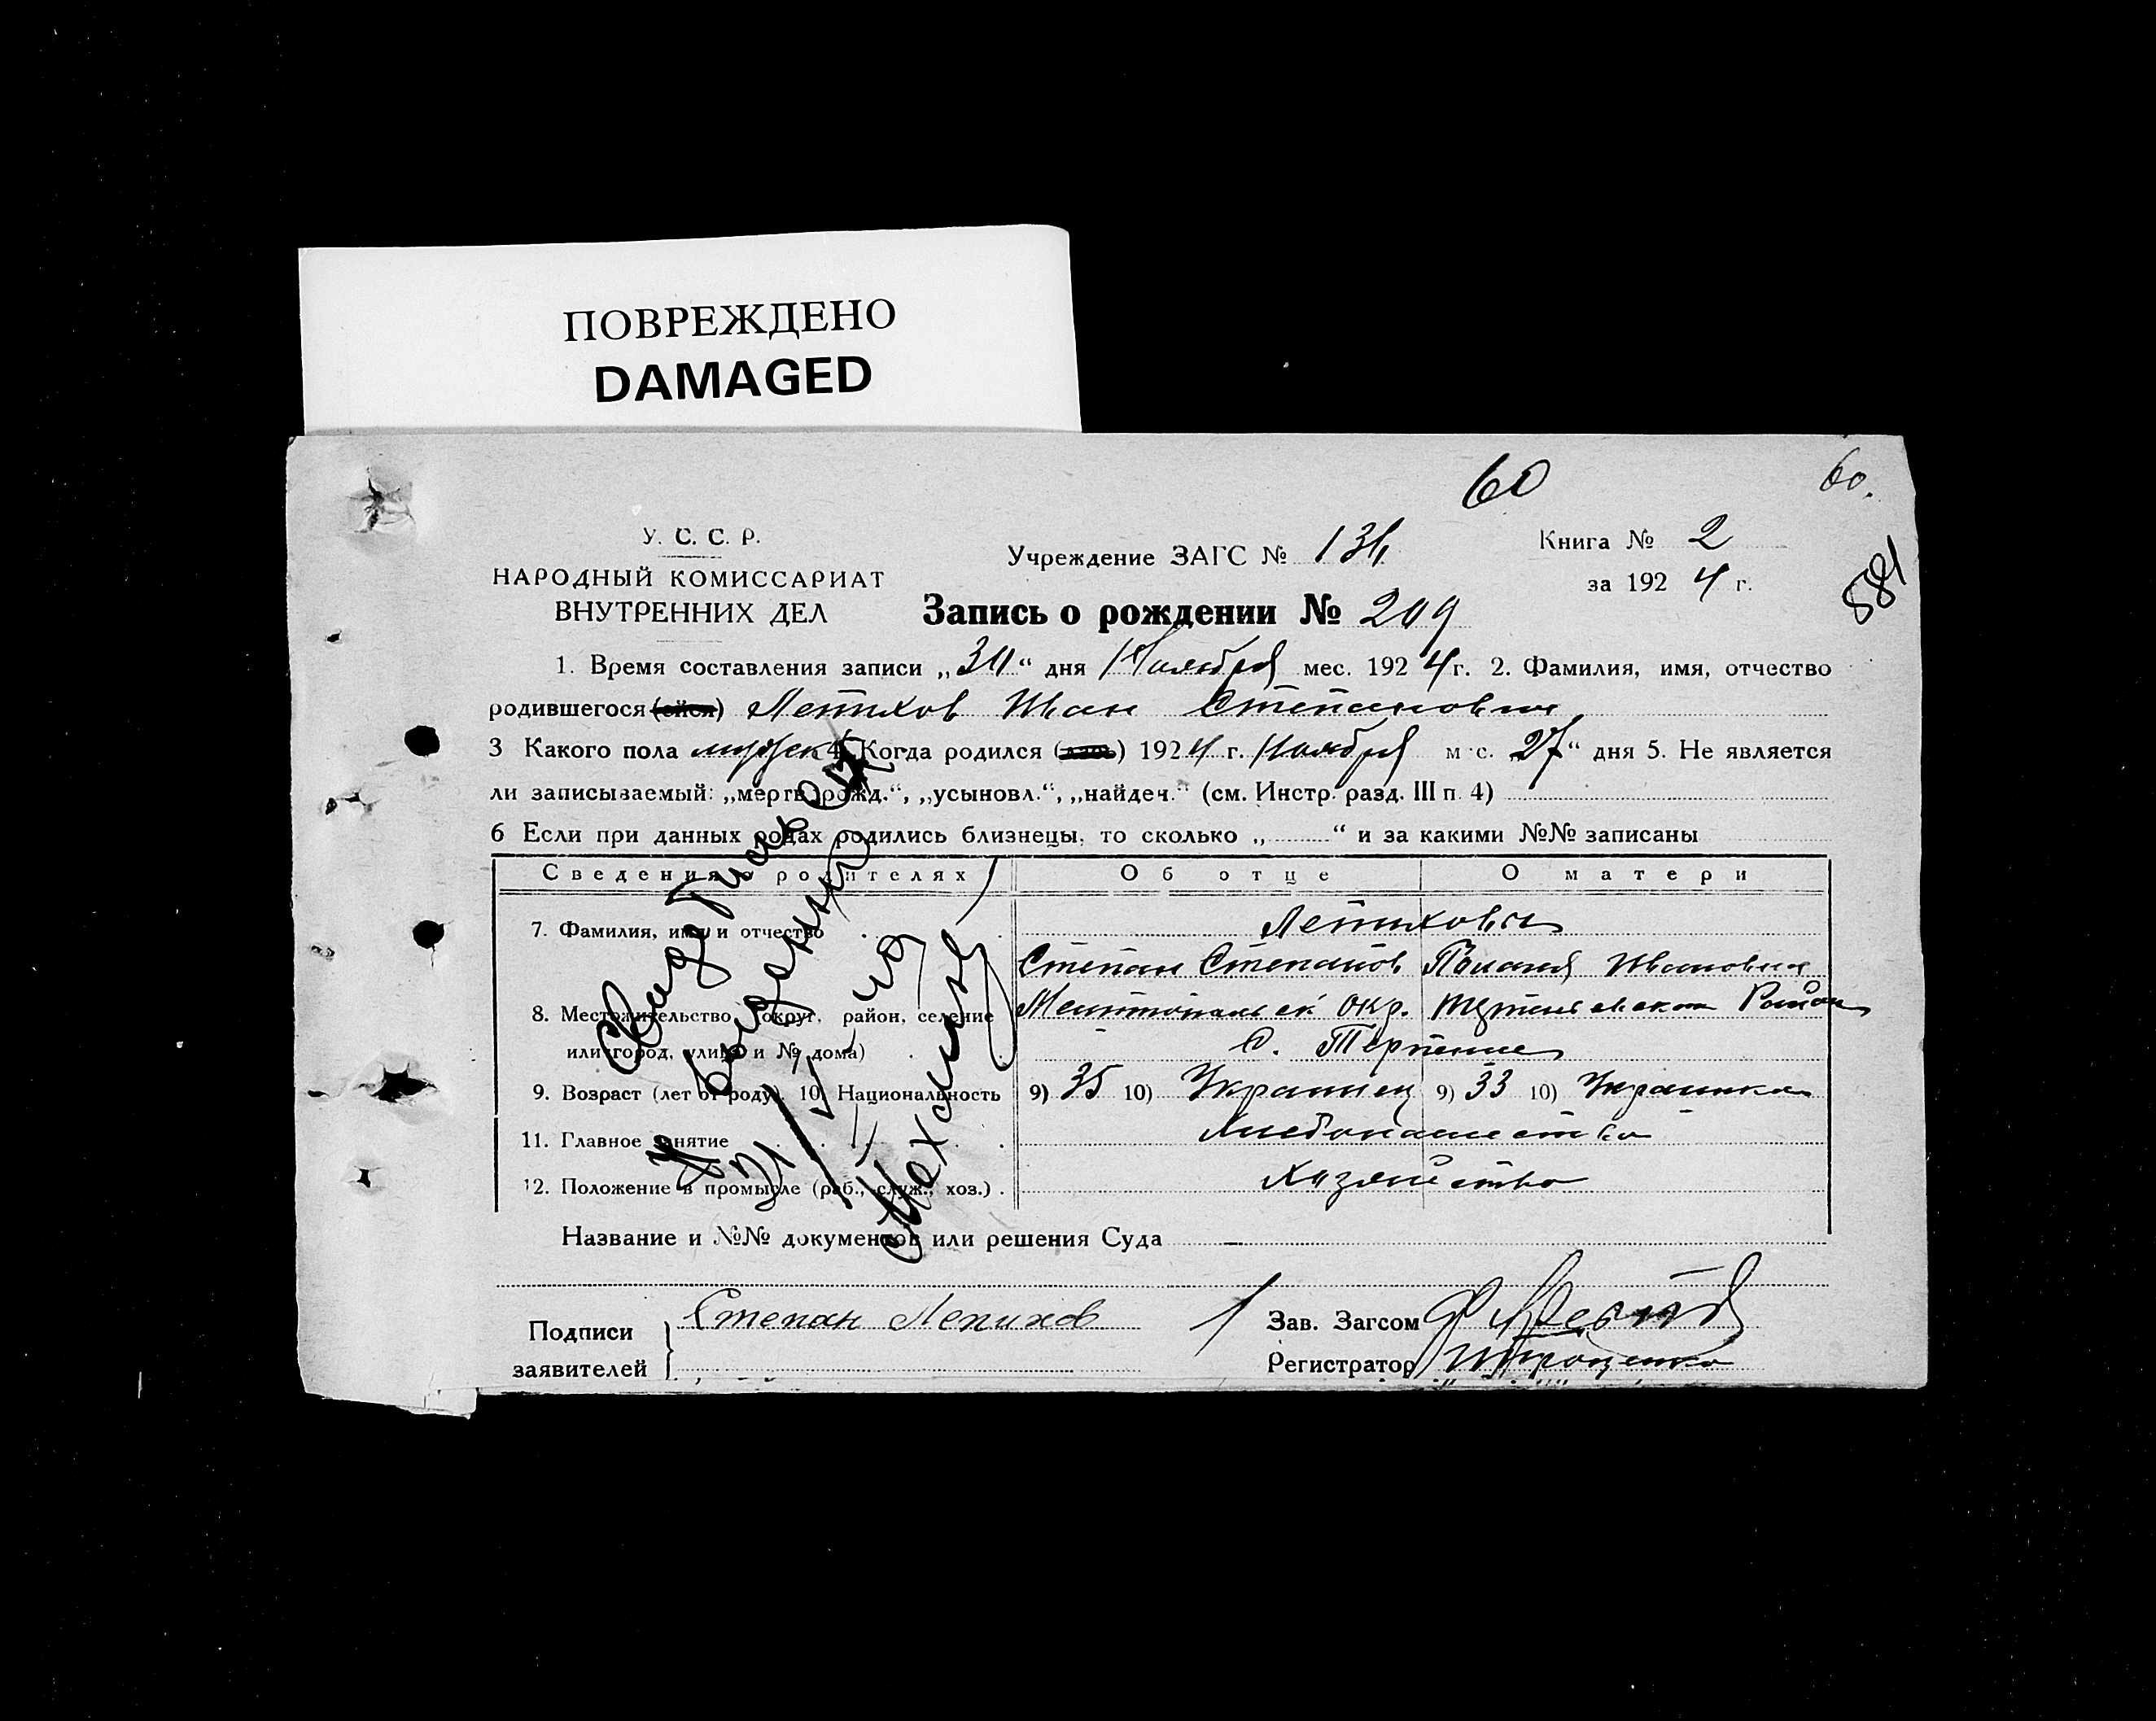 ПОВРЕЖДЕНО
DAMAGED
60
60.
У. С. С. Р.
НАРОДНЫЙ КОМИССАРИАТ
ВНУТРЕННИХ ДЕЛ
Учреждение ЗАГС №
Книга № 2
за 1924 г.
881
Запись о рождении № 209
1. Время составления записи „30“ дня Ноября мес. 1924 г. 2. Фамилия, имя, отчество
родившегося (ейся) Лепихов Иван Степанович
3 Какого пола мужск 4. Когда родился (лась) 1924 г. Ноября м с. „27“ дня 5. Не является
ли записываемый: „мертворожд.“, „усыновл.“, „найден.“ (см. Инстр. разд. III п. 4)
6 Если при данных родах родились близнецы, то сколько „ “ и за какими №№ записаны
Сведения о родителях Об отце О матери
7. Фамилия, имя и отчество Лепиховы
Степан Степанов Ивановна
8. Местожительство (округ, район, селение Мелитопольск окр. Район
или город, улица и № дома) С. Терпение
9. Возраст (лет от роду). 10. Национальность 9) 35 10) Украинец 9) 33 10) Украинка
11. Главное занятие Хлебопашество
12. Положение в промысле (раб., служ., хоз.) Хозяйство
Название и №№ документов или решения Суда —
Подписи заявителей Степан Лепихов
Зав. Загсом
Регистратор